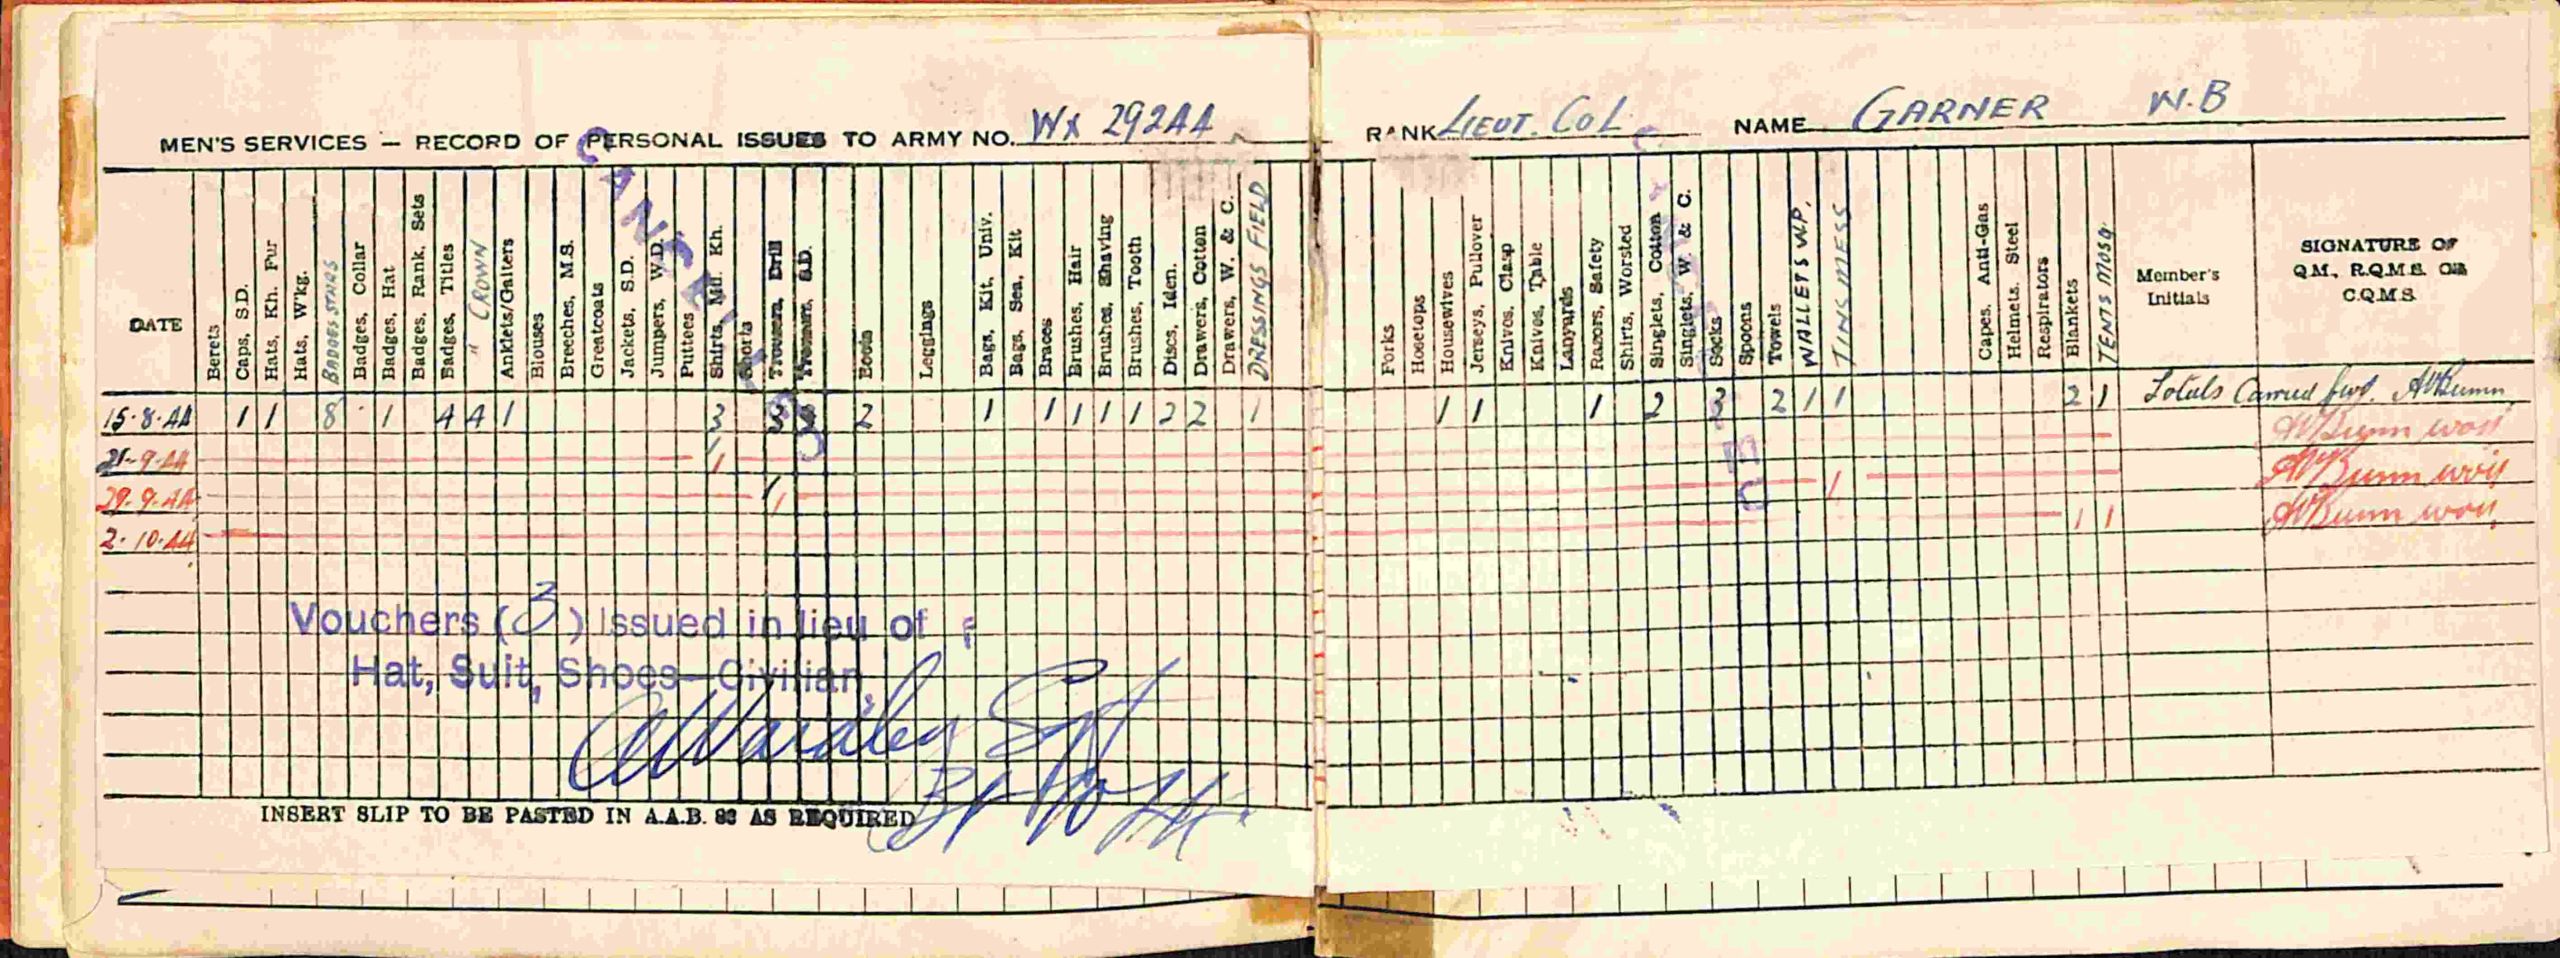 MEN'S SERVICES — RECORD OF PERSONAL ISSUES TO ARMY NO. WX 29244 RANK LIEUT. COL. NAME GARNER W.B
CANCELLED
CANCELLED
DATE
Berets
Caps, S.D.
Hats, Kh. Fur
Hats, W'kg.
BADGES STARS
Badges, Collar
Badges, Hat
Badges, Rank. Sets
Badges, Titles
" CROWN
Anklets/Gaiters
Blouses
Breeches, M.S.
Greatcoats
Jackets, S.D.
Jumpers, W.D.
Puttees
Shirts, Mil. Kh.
Shorts
Trousers, Drill
Trousers, S.D.
Boots
Leggings
Bags, Kit, Univ.
Bags, Sea, Kit
Braces
Brushes, Hair
Brushes, Shaving
Brushes, Tooth
Discs, Iden.
Drawers, Cotton
Drawers, W. & C.
DRESSINGS FIELD
Forks
Hosetops
Housewives
Jerseys, Pullover
Knives, Clasp
Knives, Table
Lanyards
Razors, Safety
Shirts, Worsted
Singlets, Cotton
Singlets, W. & C.
Socks
Spoons
Towels
WALLETS W.P.
TINS MESS
Capes, Anti-Gas
Helmets, Steel
Respirators
Blankets
TENTS MOSQ.
Member's
Initials
SIGNATURE OF
Q.M., R.Q.M.S. OR
C.Q.M.S.
15.8.44 1 1 8 1 4 4 1 3 3 3 2 1 1 1 1 1 2 2 1 1 1 1 2 3 2 1 1 2 1 Totals Carried fwd. AWBunn
21-9-44 1 AWBunn WOII
29.9.44 1 1 1 AWBunn WOII
2.10.44 1 1 AWBunn WOII
Vouchers (3) Issued in lieu of
Hat, Suit, Shoes—Civilian.
Wardley Sgt
INSERT SLIP TO BE PASTED IN A.A.B. 83 AS REQUIRED